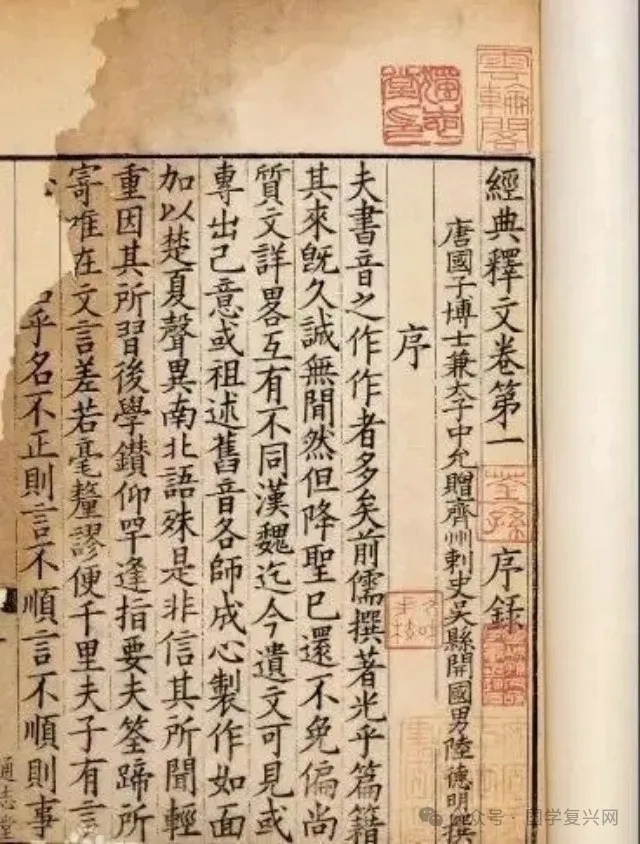 雲輪閣
獨志堂印
經典釋文卷第一 序錄
荃孫
唐國子博士兼太子中允贈齊州刺史吳縣開國男陸德明撰
序
夫書音之作作者多矣前儒撰著光乎篇籍
其來旣久誠無閒然但降聖已還不免偏尚
質文詳畧互有不同漢魏迄今遺文可見或
專出己意或祖述舊音各師成心製作如面
加以楚夏聲異南北語殊是非信其所聞輕
重因其所習後學鑽仰罕逢指要夫筌蹄所
寄唯在文言差若毫釐謬便千里夫子有言
乎名不正則言不順言不順則事
通志堂
众号 · 国学复兴网